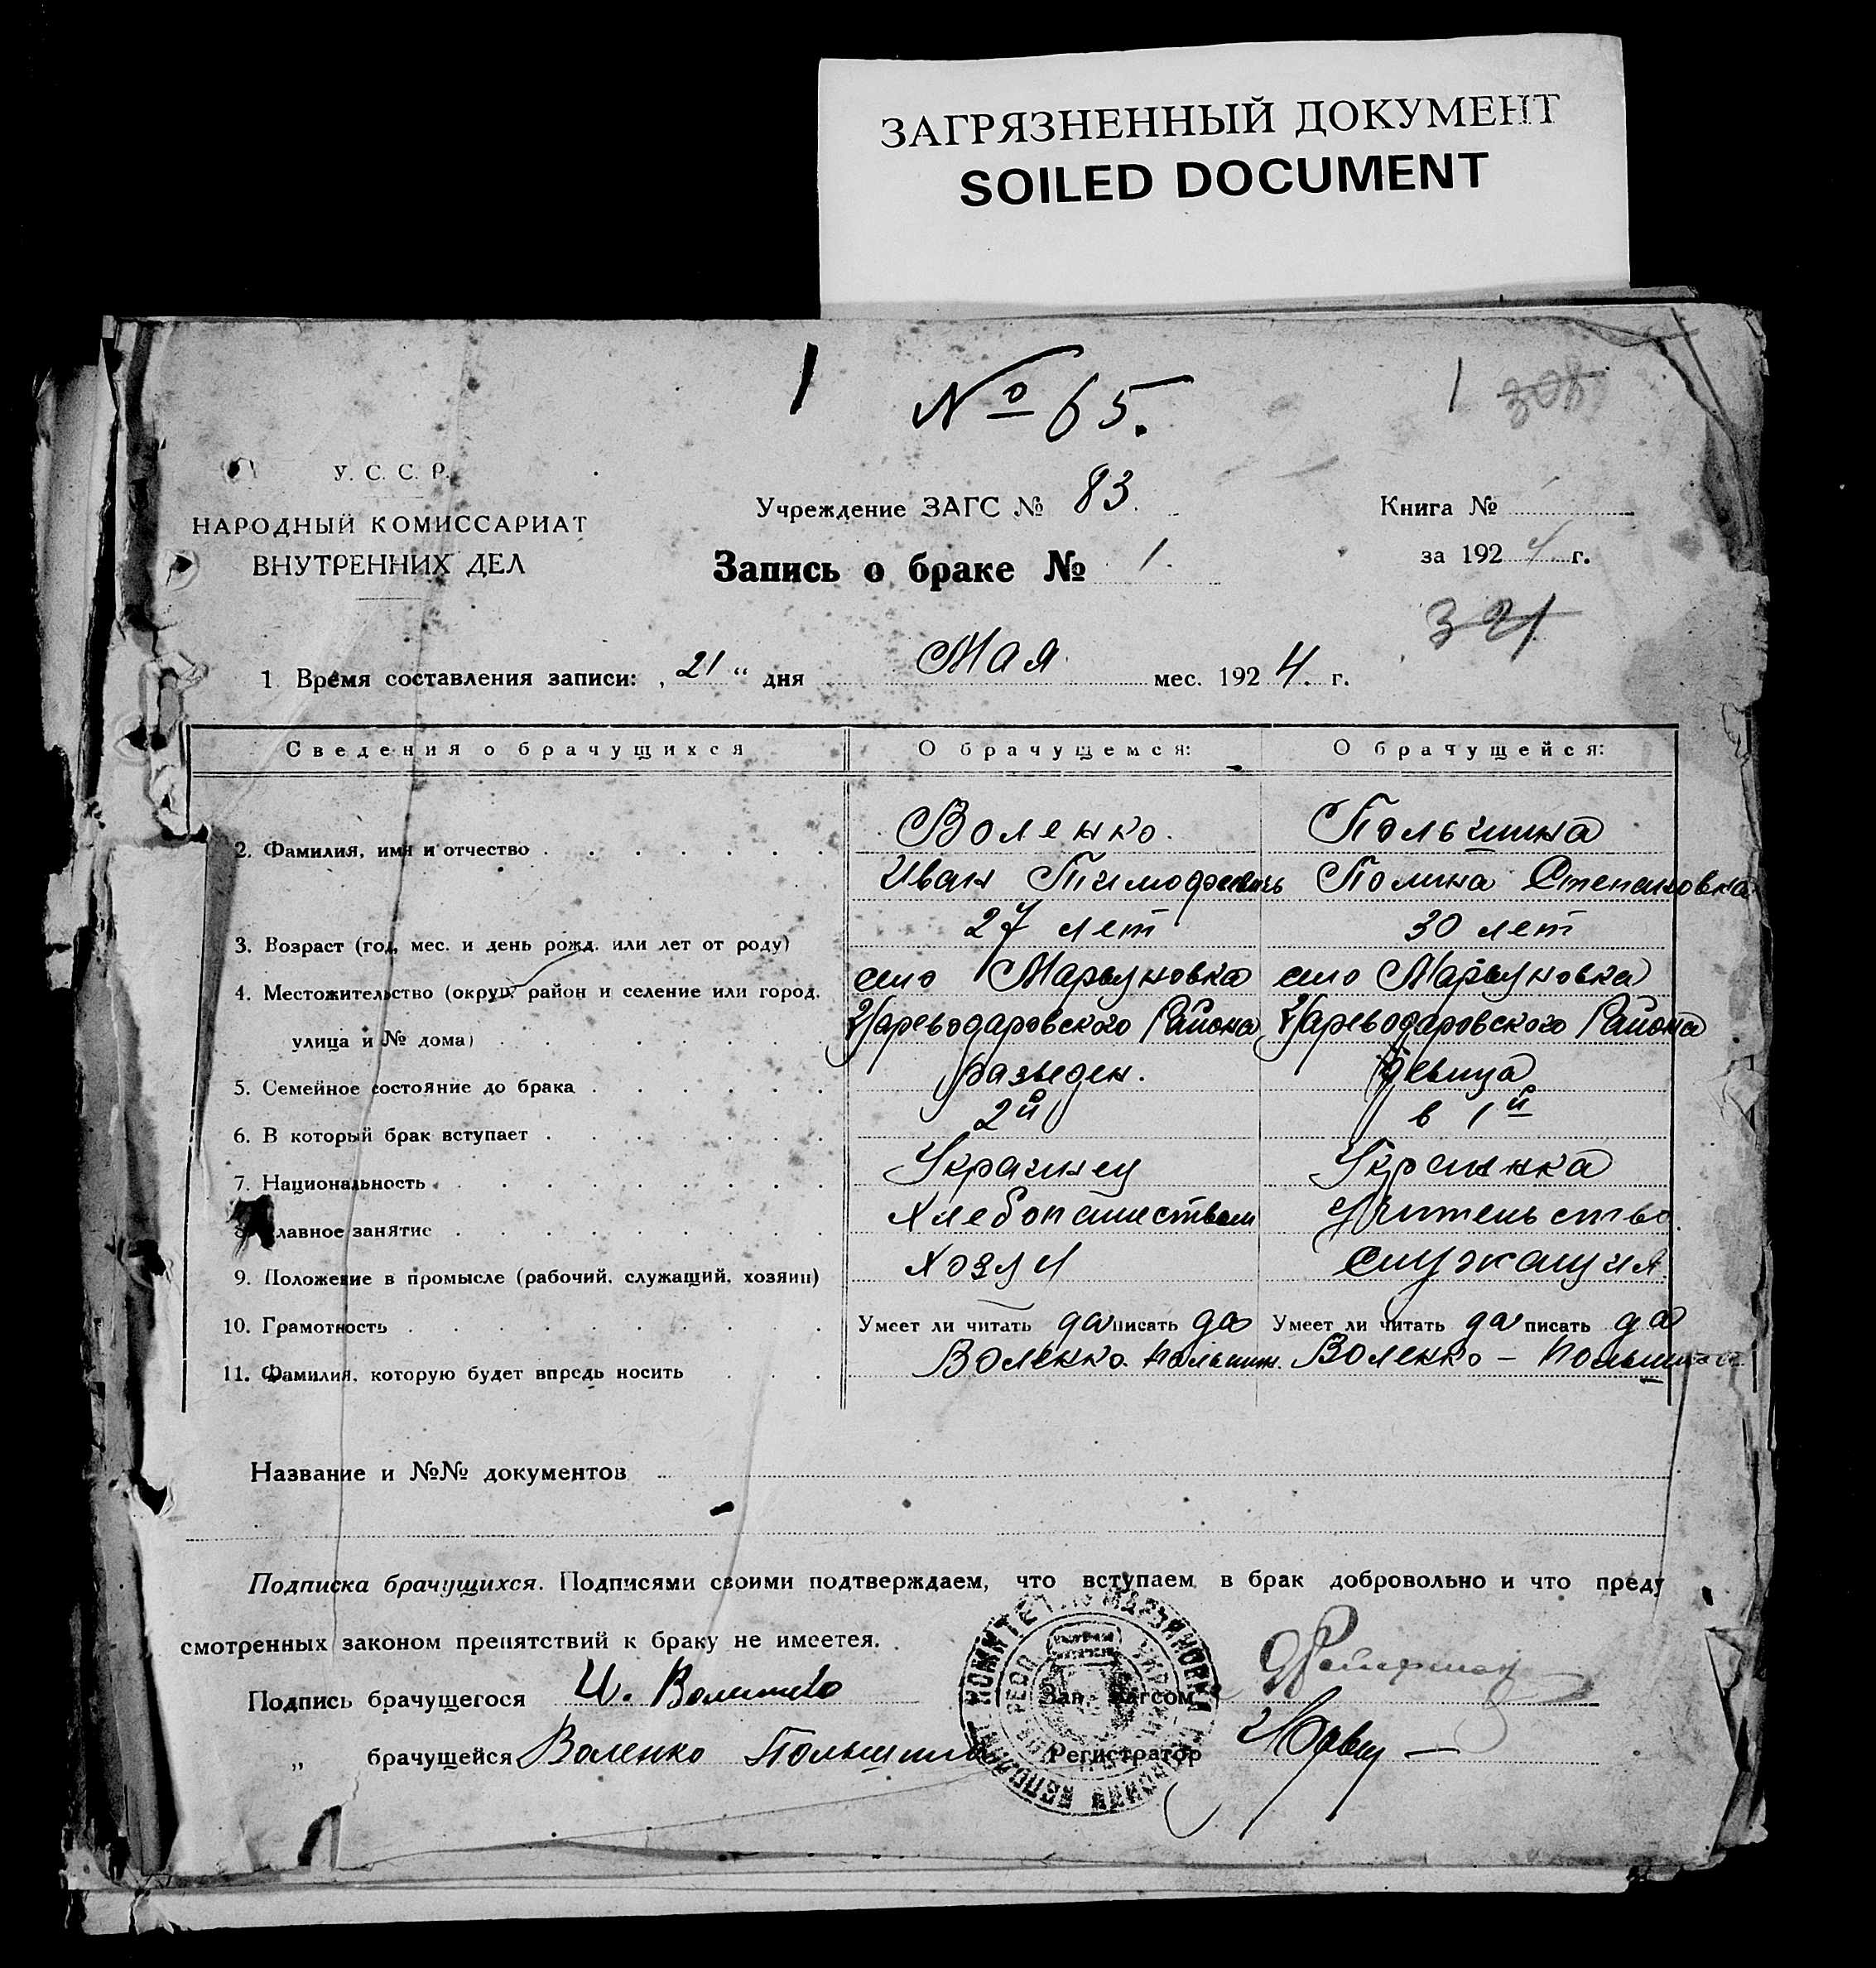 ЗАГРЯЗНЕННЫЙ ДОКУМЕНТ
SOILED DOCUMENT
1
№ 65.
1 308
У. С. С. Р.
НАРОДНЫЙ КОМИССАРИАТ
ВНУТРЕННИХ ДЕЛ
Учреждение ЗАГС № 83.
Запись о браке № 1.
Книга №
за 1924 г.
321
1 Время составления записи: „21“ дня Мая мес. 1924. г.
Сведения о брачущихся О брачущемся: О брачущейся:
2. Фамилия, имя и отчество Воленко. Польшина
Иван Тимофеевичь Полина Степановна
3. Возраст (год, мес. и день рожд. или лет от роду) 27 лет 30 лет
4. Местожительство (округ, район и селение или город, село Марьяновка село Марьяновка
улица и № дома) Цареводаровского Района Цареводаровского Района
5. Семейное состояние до брака разведен. девица
6. В который брак вступает 2й в 1й
7. Национальность Украинец Украинка
8. Главное занятие Хлебопашеством Учительство.
9. Положение в промысле (рабочий, служащий, хозяин) Служащия
10. Грамотность Умеет ли читать да писать да Умеет ли читать да писать да
11. Фамилия, которую будет впредь носить Воленко. Польшин. Воленко —
Название и №№ документов
Подписка брачущихся. Подписями своими подтверждаем, что вступаем в брак добровольно и что преду
смотренных законом препятствий к браку не имеется.
Подпись брачущегося И. Воленко Зав. Загсом
„ брачущейся Воленко Польшина Регистратор